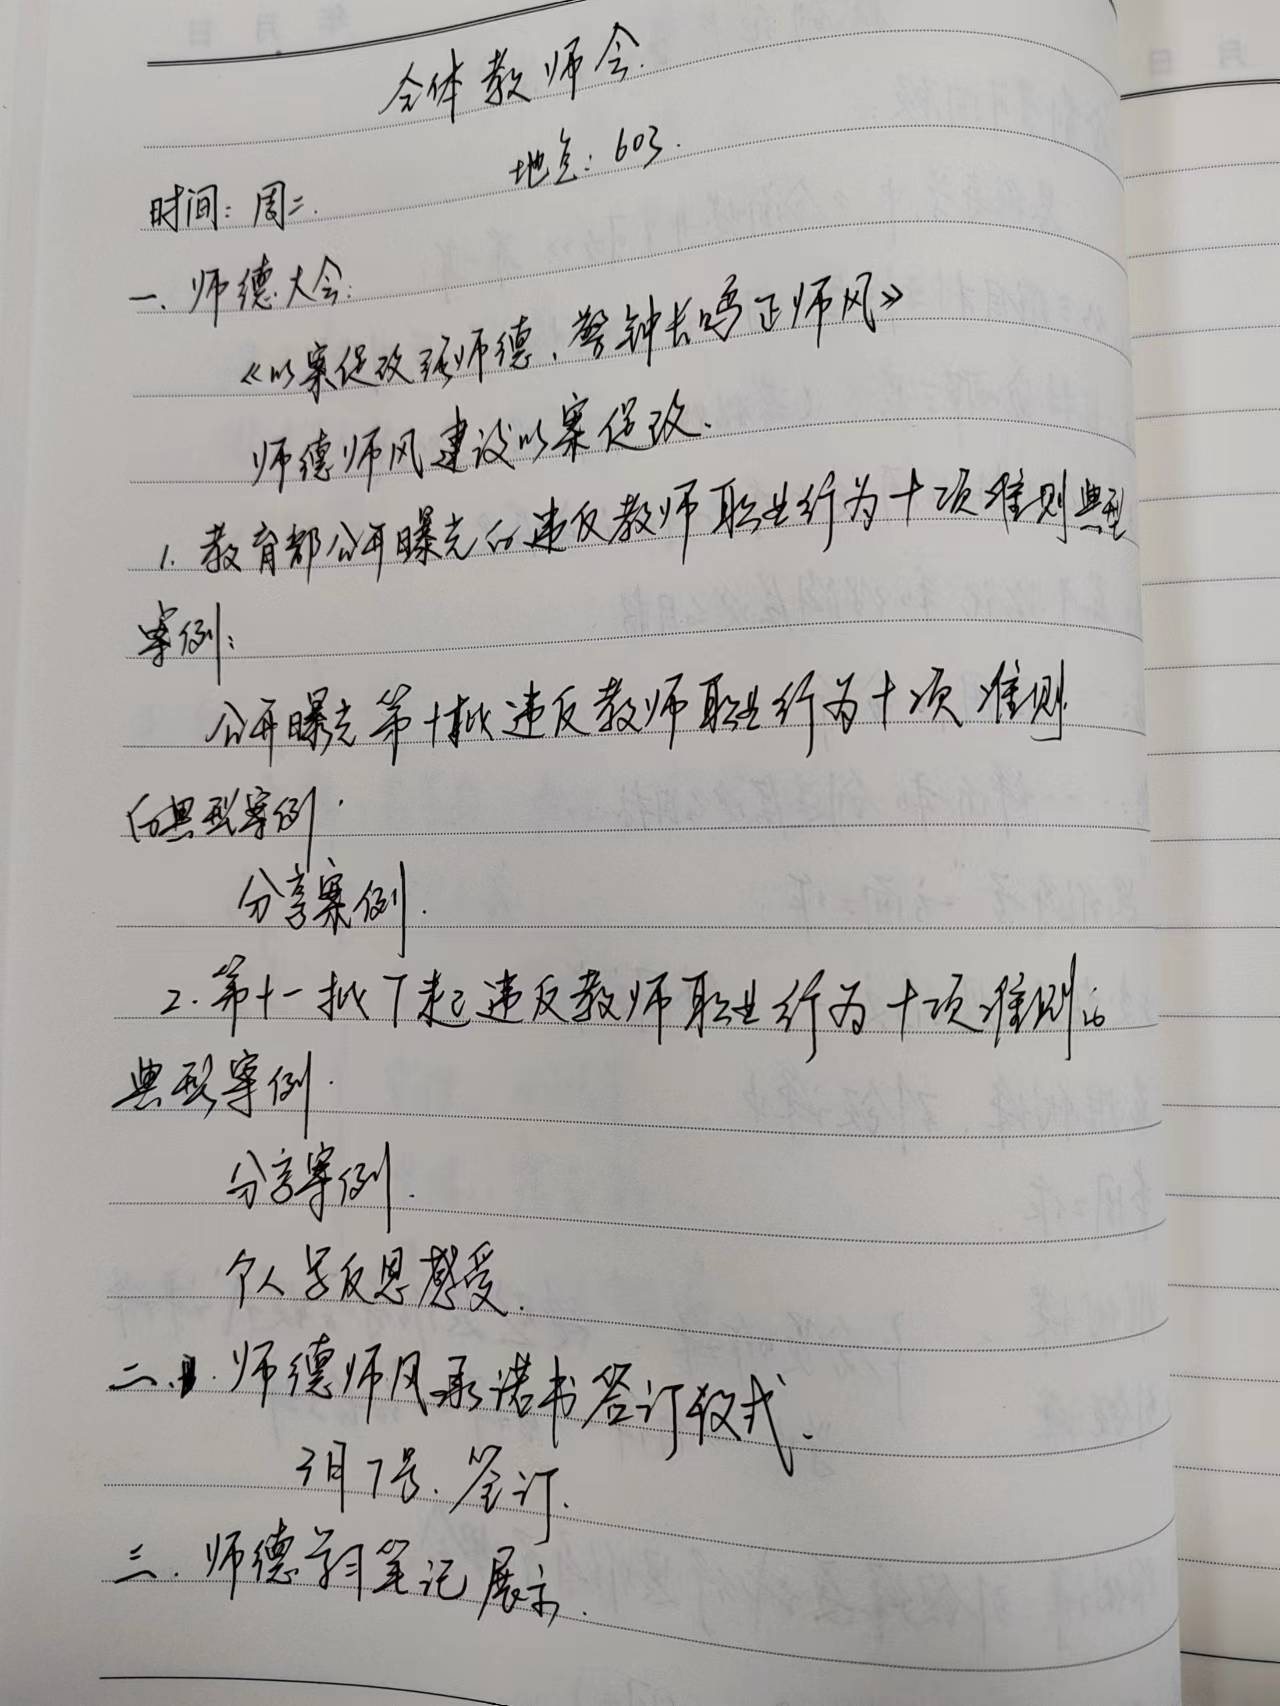 全体教师会.
地点：603.
时间：周二.
一、师德大会：
《以案促改强师德、警钟长鸣正师风》
师德师风建设以案促改.
1. 教育部公开曝光的违反教师职业行为十项准则典型
案例：
公开曝光第十批违反教师职业行为十项准则
的典型案例.
分享案例.
2. 第十一批7起违反教师职业行为十项准则的
典型案例.
分享案例.
个人反思感受.
二. 师德师风承诺书签订仪式.
3月7号. 签订.
三. 师德学习笔记展示.